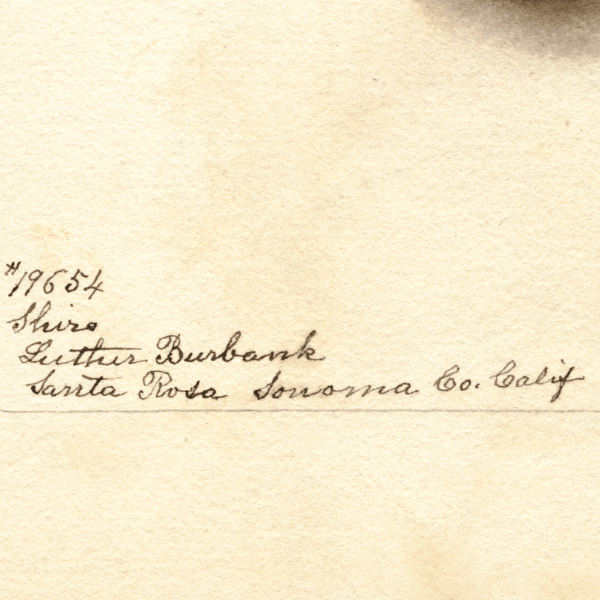 #19654
Shiro
Luther Burbank
Santa Rosa Sonoma Co. Calif